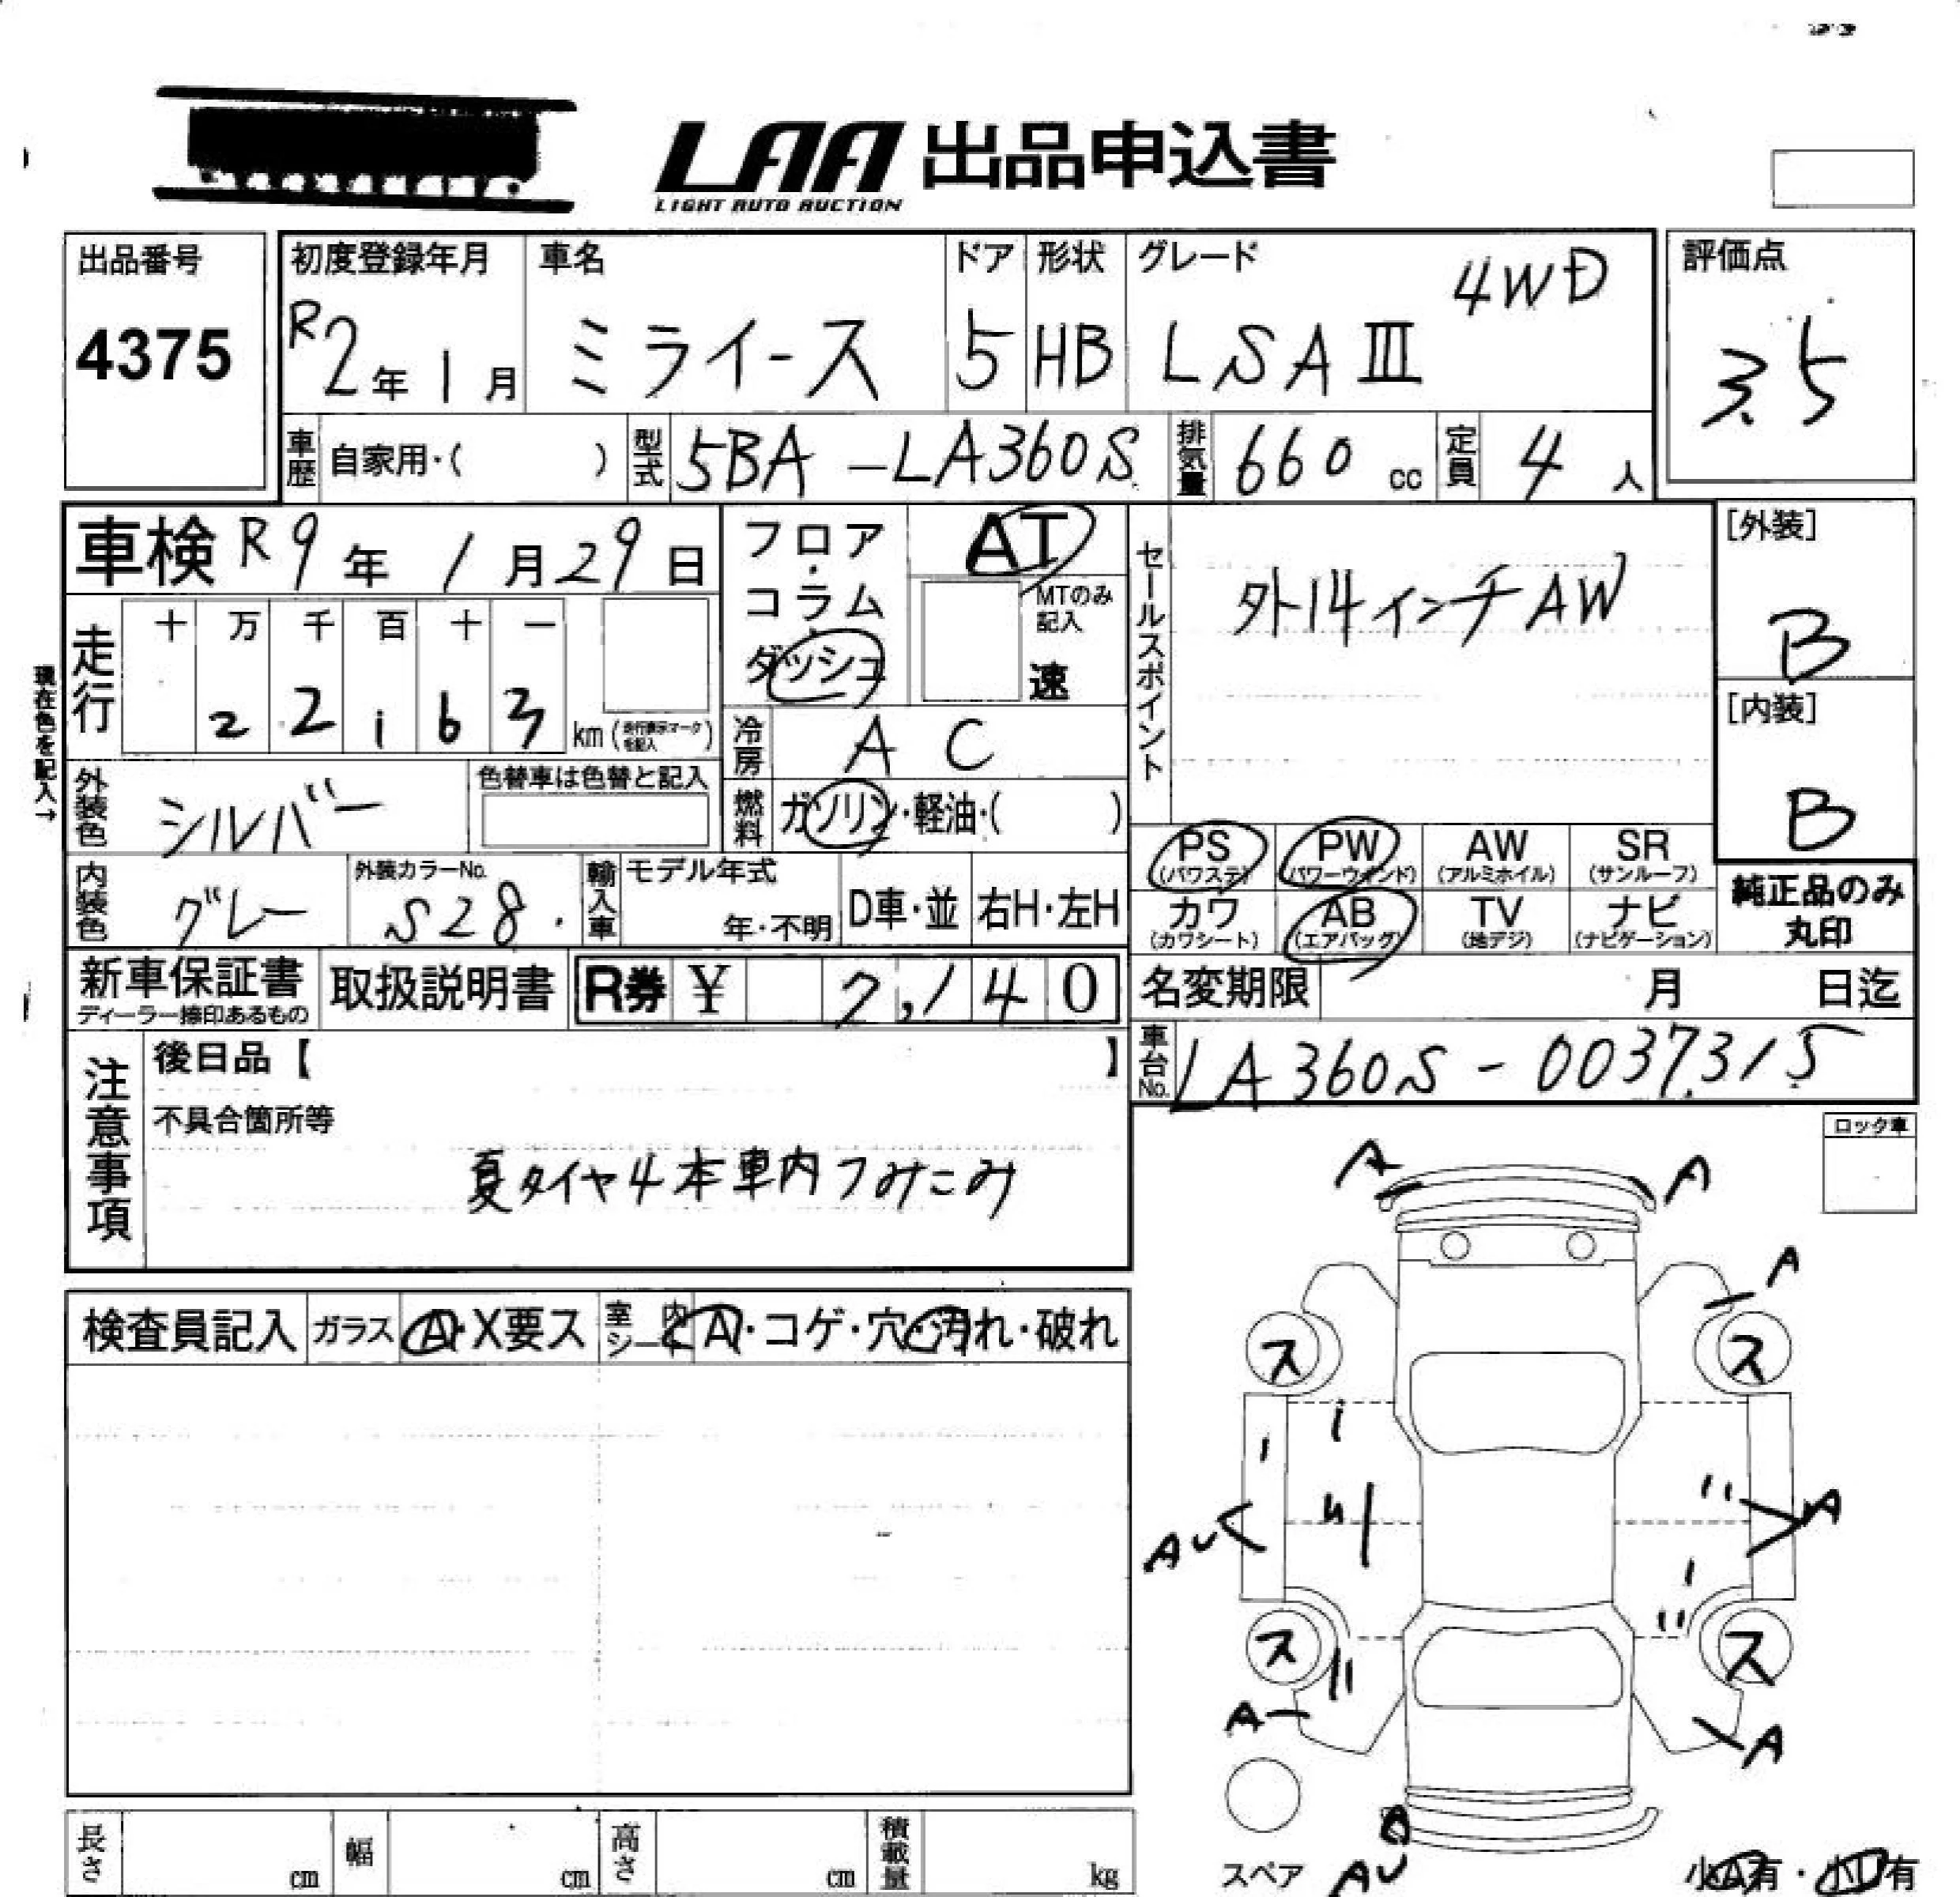 LAA 出品申込書
LIGHT AUTO AUCTION
出品番号
4375
初度登録年月
R2年1月
車名
ミライース
ドア
5
形状
HB
グレード
4WD
LSAⅢ
評価点
3.5
車歴 自家用・( )
型式 5BA-LA360S
排気量 660 cc
定員 4 人
車検 R9年1月29日
フロア・コラム・ダッシュ
AT
MTのみ記入
速
セールスポイント
外14インチAW
[外装]
B
[内装]
B
走行
十 万 千 百 十 一
2 2 1 6 3
km (走行表示マークを記入)
現在色を記入→
冷房 A C
燃料 ガソリン・軽油・( )
外装色 シルバー
色替車は色替と記入
内装色 グレー
外装カラーNo.
S28
輸入車 モデル年式
年・不明
D車・並
右H・左H
PS (パワステ)
PW (パワーウインド)
AW (アルミホイル)
SR (サンルーフ)
カワ (カワシート)
AB (エアバッグ)
TV (地デジ)
ナビ (ナビゲーション)
純正品のみ丸印
新車保証書
ディーラー捺印あるもの
取扱説明書
R券 ¥ 7,140
名変期限 月 日迄
車台No. LA360S-0037315
注意事項
後日品【 】
不具合箇所等
夏タイヤ4本車内つみこみ
ロック車
検査員記入 ガラス A・X要ス 室内シート A・コゲ・穴・汚れ・破れ
A A
A
ス ス
AU A
ス ス
A A
スペア AU
小A有・小U有
長さ cm 幅 cm 高さ cm 積載量 kg